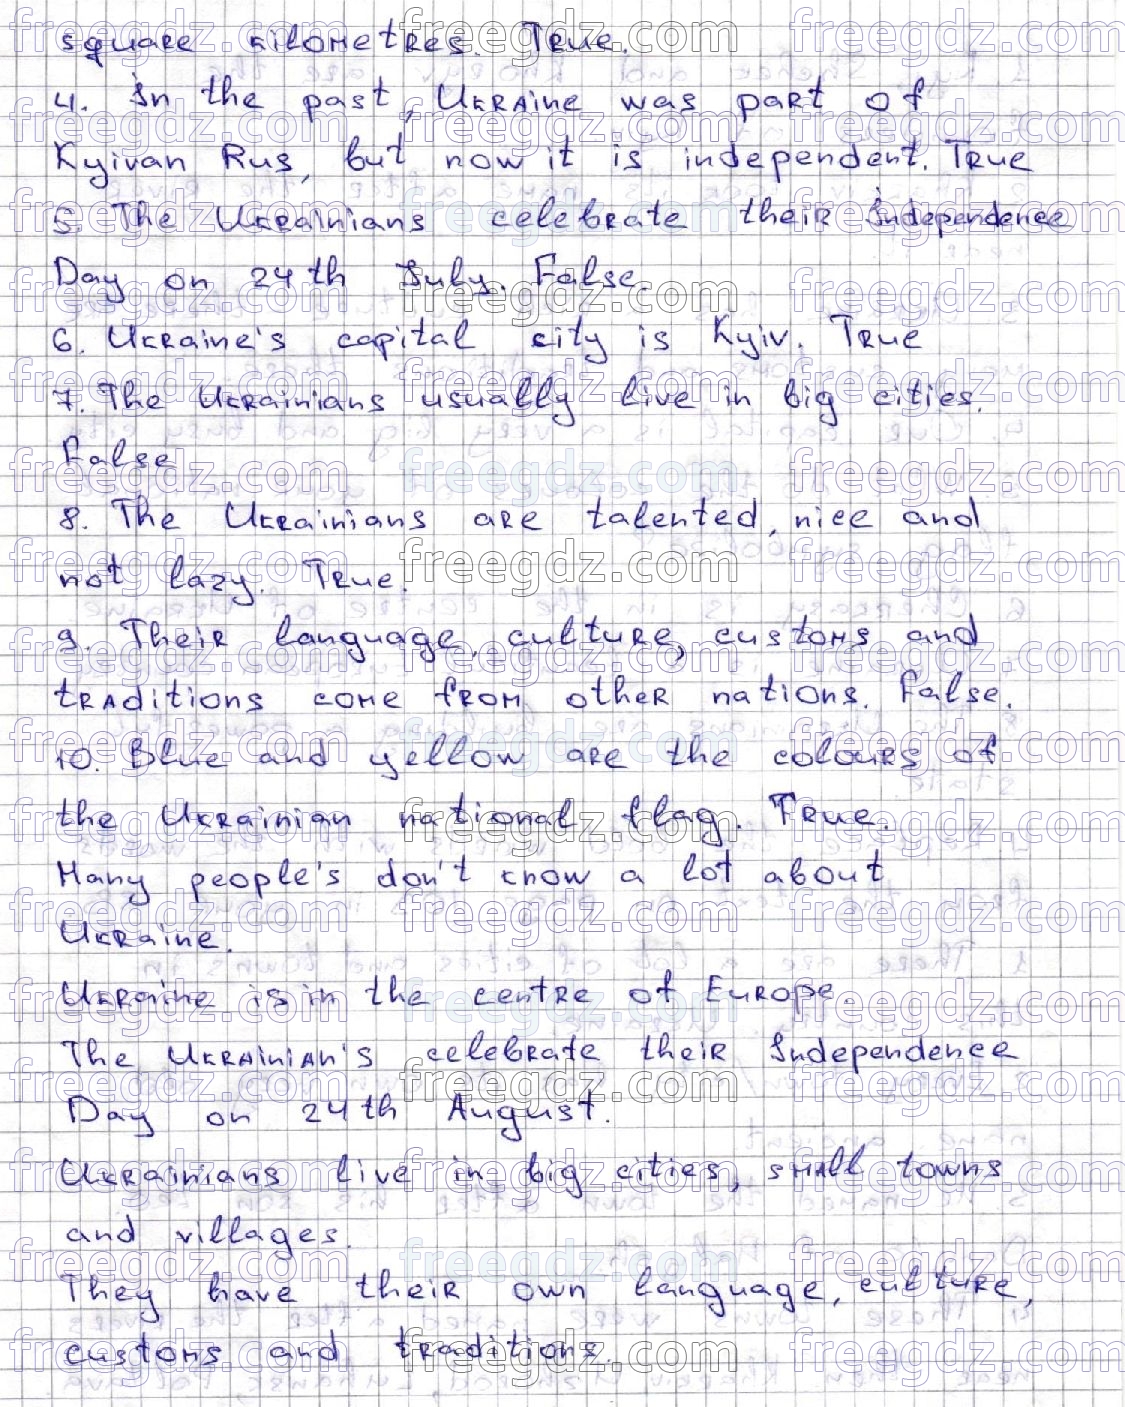 square kilometres. True.
4. In the past, Ukraine was part of
Kyivan Rus, but now it is independent. True
5. The Ukrainians celebrate their Independence
Day on 24th July. False.
6. Ukraine's capital city is Kyiv. True
7. The Ukrainians usually live in big cities.
False
8. The Ukrainians are talented, nice and
not lazy. True.
9. Their language, culture, customs and
traditions come from other nations. False.
10. Blue and yellow are the colours of
the Ukrainian national flag. True.
Many people's don't know a lot about
Ukraine.
Ukraine is in the centre of Europe.
The Ukrainian's celebrate their Independence
Day on 24th August.
Ukrainians live in big cities, small towns
and villages.
They have their own language, culture,
customs and traditions.